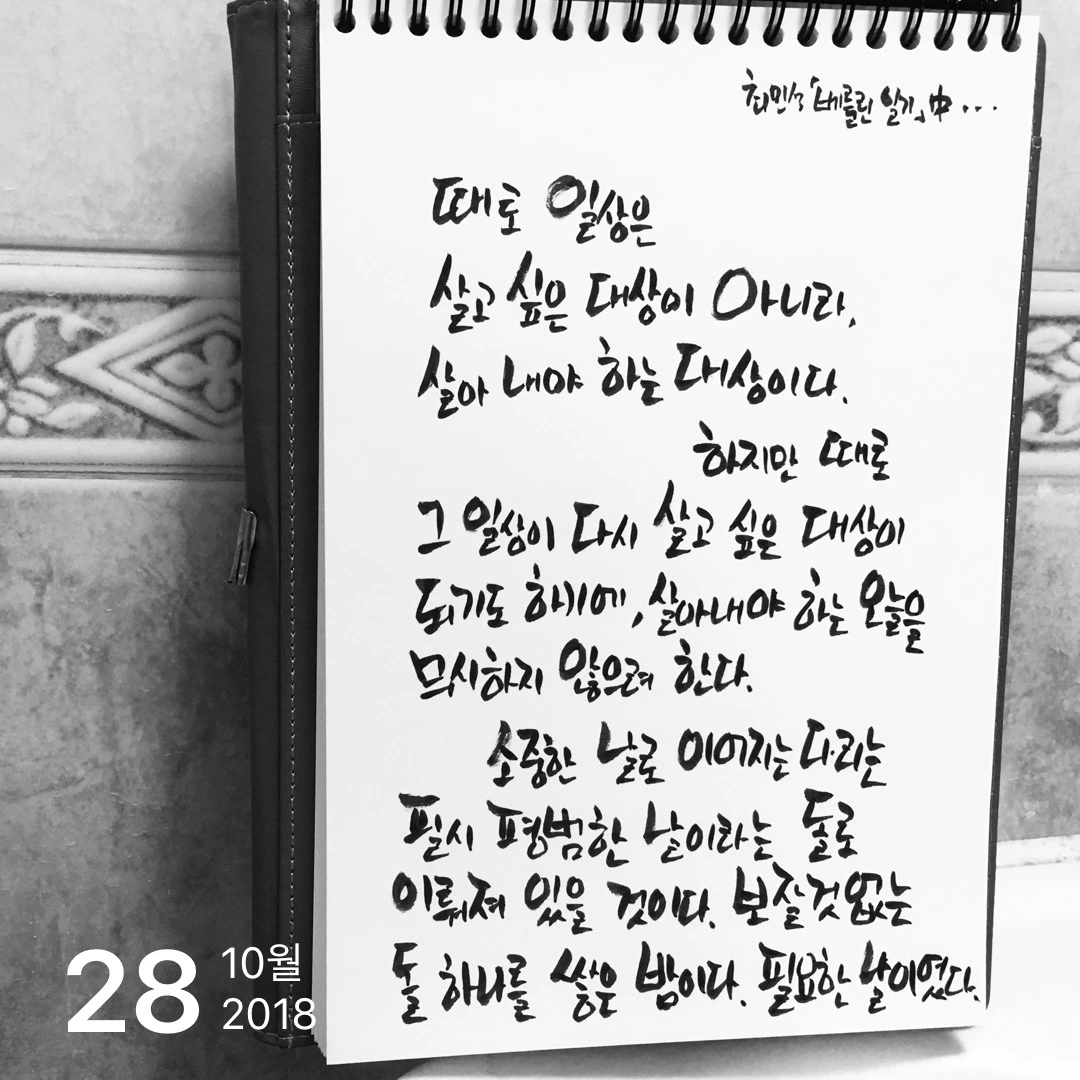 최민석 「베를린 일기」 中 ...
때로 일상은
살고 싶은 대상이 아니라,
살아 내야 하는 대상이다.
하지만 때로
그 일상이 다시 살고 싶은 대상이
되기도 하기에, 살아내야 하는 오늘을
무시하지 않으려 한다.
소중한 날로 이어지는 다리는
필시 평범한 날이라는 돌로
이뤄져 있을 것이다. 보잘것없는
돌 하나를 쌓은 밤이다. 필요한 날이었다.
28 10월
2018